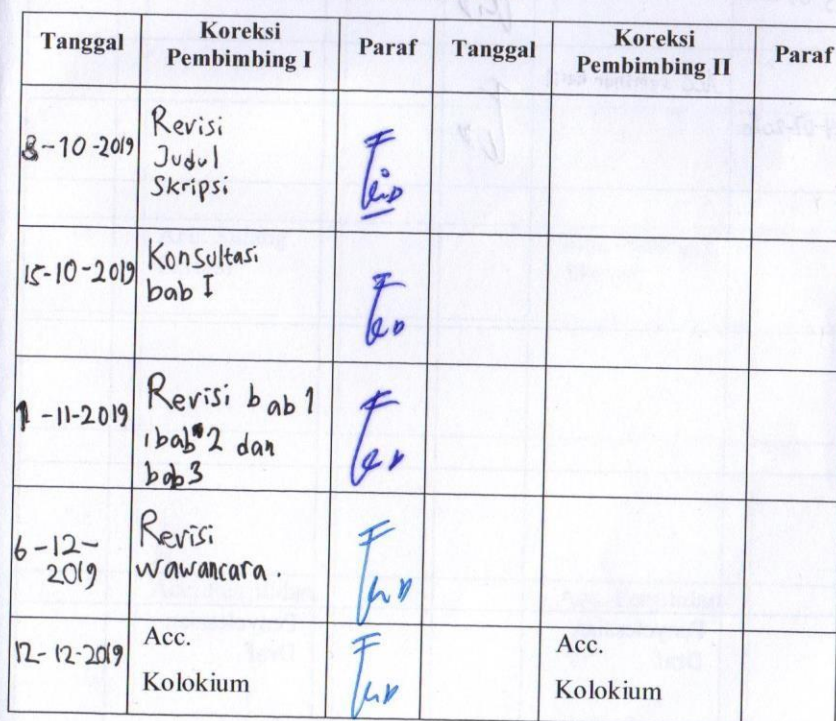 Tanggal
Koreksi
Pembimbing I
Paraf
Tanggal
Koreksi
Pembimbing II
Paraf
8-10-2019
Revisi
Judul
Skripsi
15-10-2019
Konsultasi
bab I
1-11-2019
Revisi bab 1
, bab 2 dan
bab 3
6-12-
2019
Revisi
wawancara.
12-12-2019
Acc.
Kolokium
Acc.
Kolokium